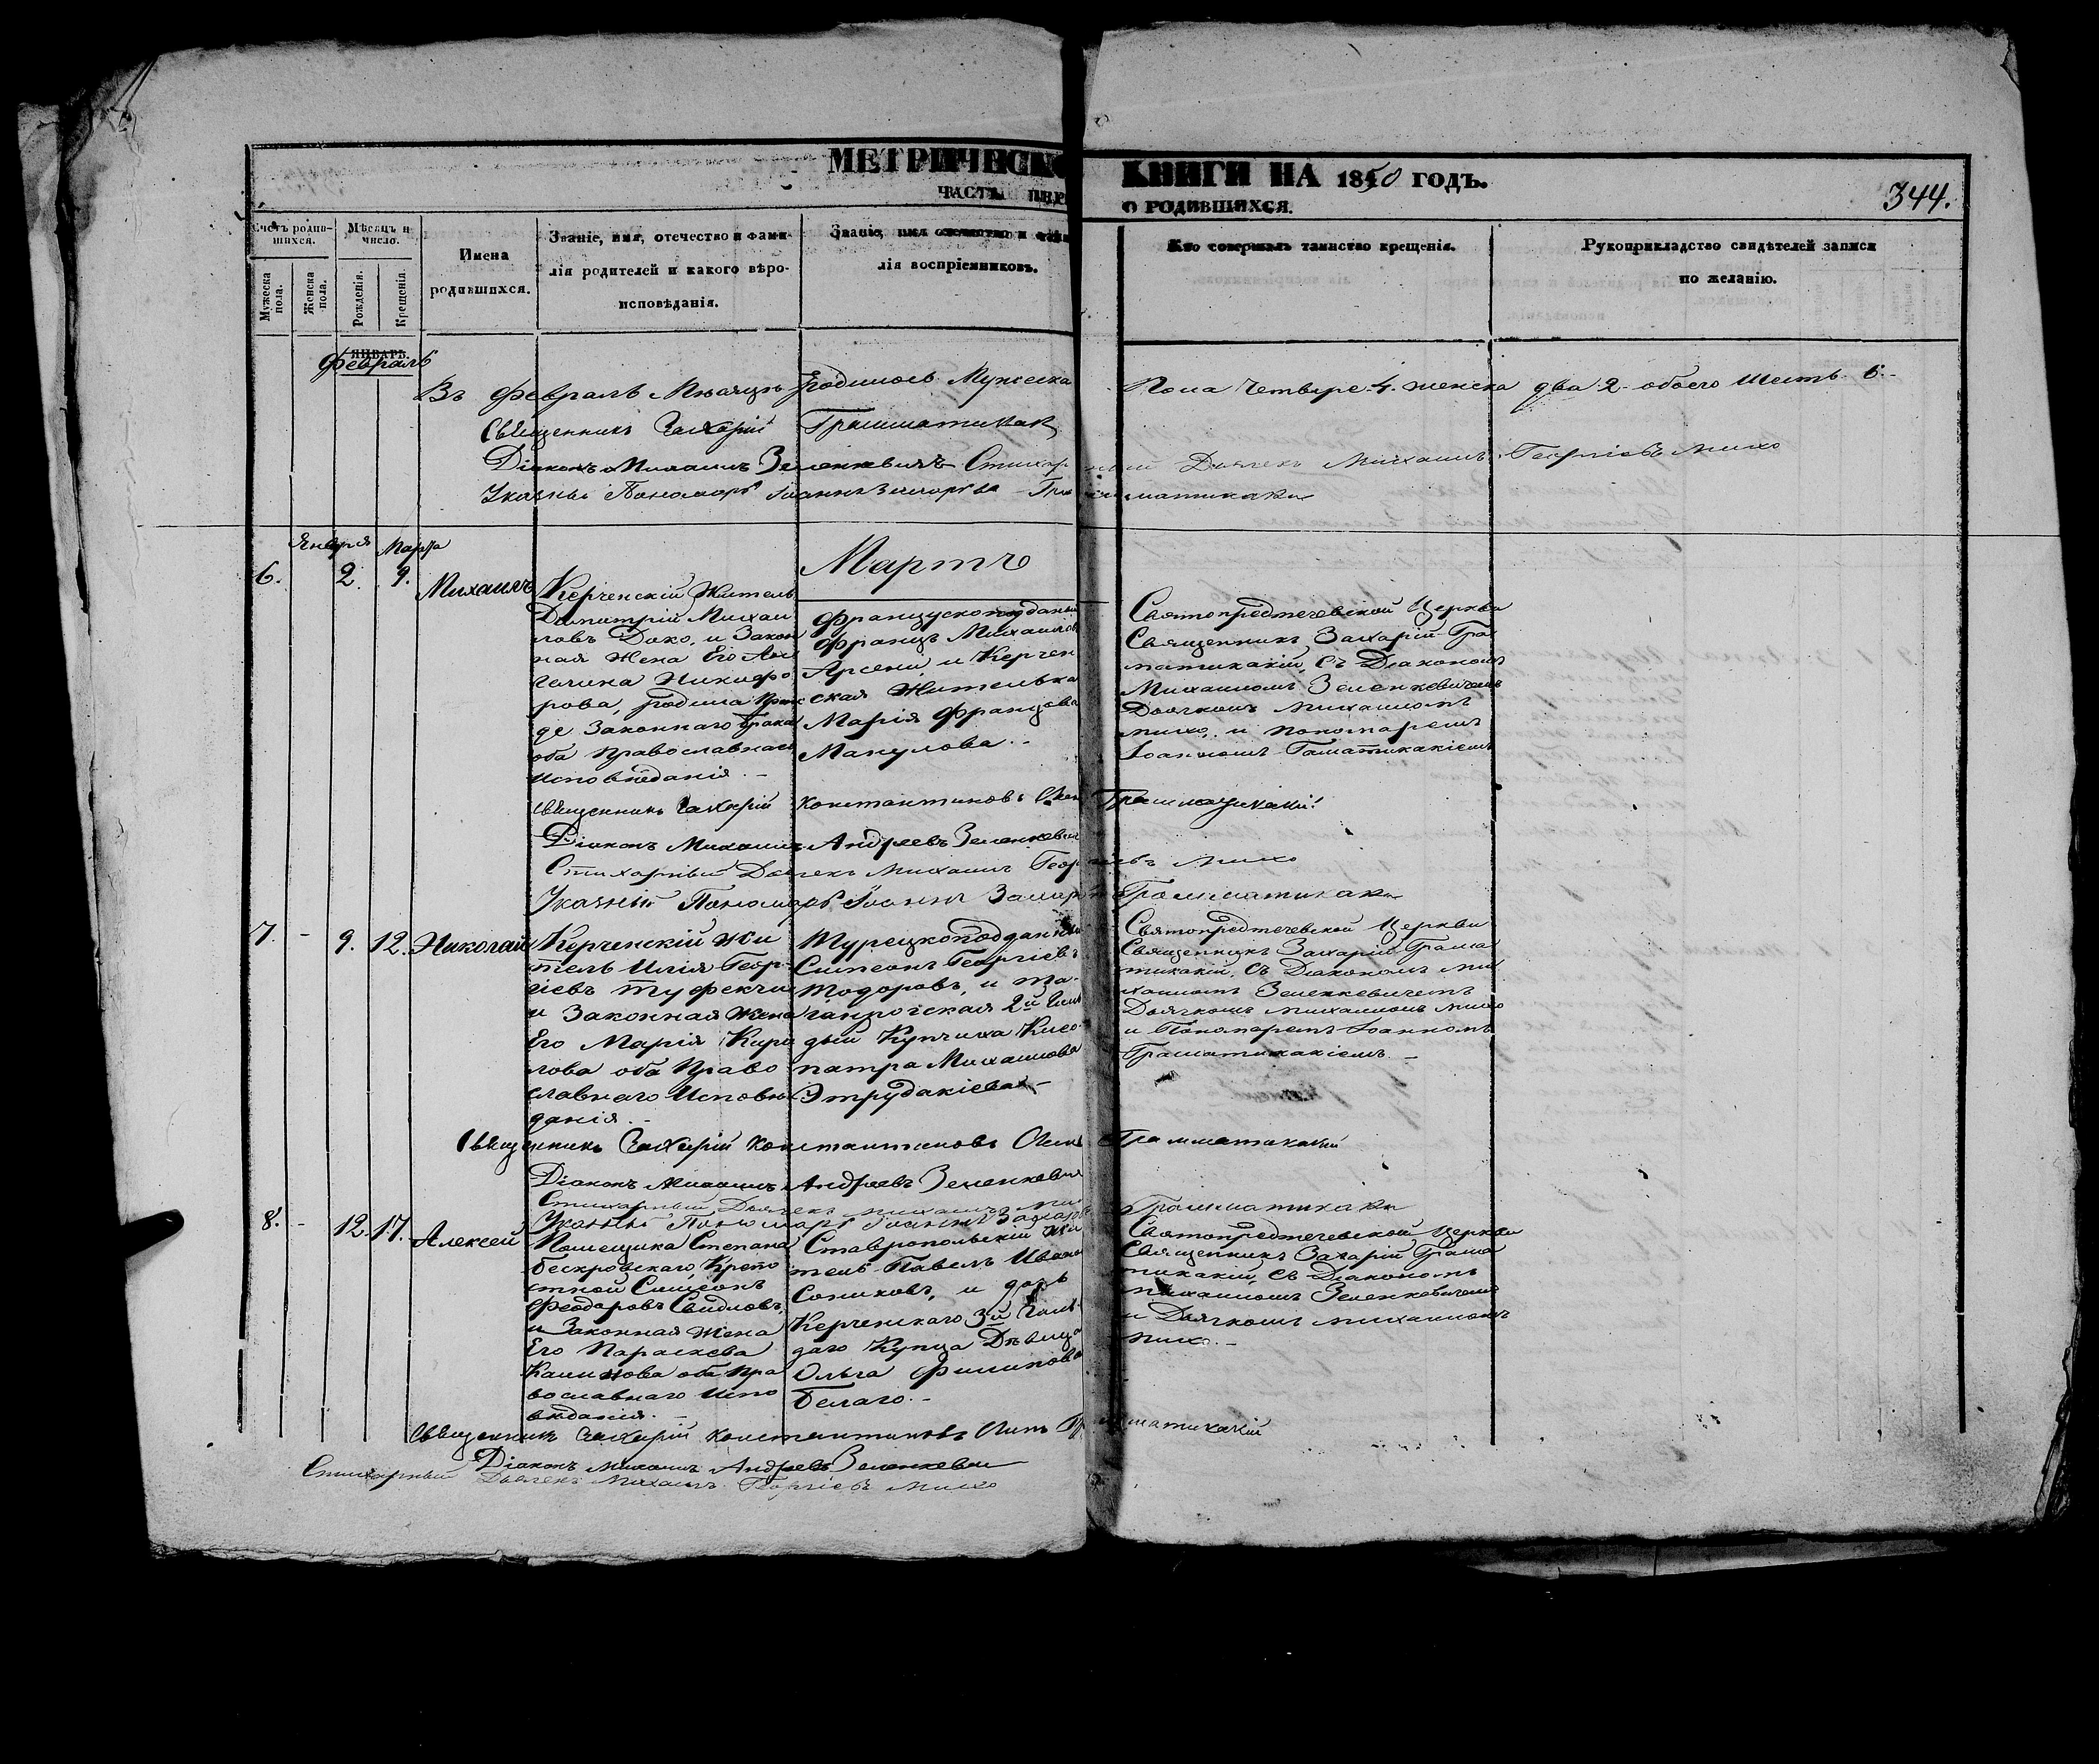 МЕТРИЧЕСКО КНИГИ НА 1850 ГОДЪ.
ЧАСТЬ ПЕР О РОДИВШИХСЯ.
344.
Счетъ родив-
шихся.
Мужеска пола.
Женска пола.
Мѣсяцъ и
число.
Рожденія.
Крещенія.
Имена
родившихся.
Званіе, имя, отечество и фами-
лія родителей и какого вѣро-
исповѣданія.
Званіе, имя отечество и фами
лія воспріемниковъ.
Кто совершалъ таинство крещенія.
Рукоприкладство свидѣтелей записи
по желанію.
ЯНВАРЬ.
Февраль
Въ Февралѣ Мѣсяцѣ родилось Мужеска Пола Четыре 4. женска два 2 обоего Шесть 6.-
Священникъ Захарій Грамматикак
Діаконъ Михаилъ Зеленкевичъ Стихарный Дьячекъ Михаилъ Георгіевъ Михо
Указный Пономарь Іоаннъ Захарьевъ Грамматикаки
Января Марта
Мартъ
6. 2. 9. Михаилъ
Керченскій Житель
Димитрій Михаи
ловъ Дако, и Закон
ная Жена Его Ан
гелина Никифо
рова, родила преж
де Законнаго брака
оба православнаго
исповѣданія.-
Французскоподданый
Францъ Михаилов
Арсени, и Керчен
ская Жителька
Марія Францова
Манулова.-
Святопредтечевской Церкви
Священникъ Захарій Гра
матикакій, съ Діакономъ
Михаиломъ Зеленкевичемъ
Дьячкомъ Михаиломъ
Михо, и пономаремъ
Іоанномъ Гаматикакіемъ
Священникъ Захарій Константиновъ Грамматикакій
Діаконъ Михаилъ Андреевъ Зеленкевич
Стихарный Дьячекъ Михаилъ Георгіевъ Михо
Указный Пономарь Іоаннъ Захарь Грамматикаки
7. - 9. 12. Николай
Керченскій Жи
тель Илія Геор-
гіевъ Туфекчи
и Законная Жена
Его Марія Кири
лова оба Право
славнаго Исповѣ
данія.-
Турецкоподданный
Симеонъ Георгіевъ
Тодоровъ, и Та-
ганрогская 2й Гиль
дыи Купчиха Клео-
патра Михаилова
Этрудакіева.-
Святопредтечевской Церкви
Священникъ Захарій Грама
тикакій, съ Діакономъ Ми
хаиломъ Зеленкевичемъ
Дьячкомъ Михаиломъ Михо
и Пономаремъ Іоанномъ
Граматикакіемъ.-
Священникъ Захарій Константиновъ Грамматикакій
Діаконъ Михаилъ Андреевъ Зеленкевич
Стихарный Дьячекъ Михаилъ
Указный Пономарь Іоаннъ Захаровъ Грамматикаки
8. - 12. 17. Алексей
Помещика Степана
Бескровскаго, Крепо
стной Симеонъ
Феодоровъ Свидловъ,
и Законная Жена
Его Параскева
Калинова оба пра
вославнаго испо
вѣданія.-
Ставропольскій Жи
тель Павелъ Иванов
Сониковъ, и дочь
Керченскаго 3й Гиль-
даго Купца Дѣвица
Ольга Филипова
Белаго.-
Святопредтечевской Церкви
Священникъ Захарій Грама
тикакій, съ Діакономъ
Михаиломъ Зеленкевичемъ
и Дьячкомъ Михаиломъ
Михо.-
Священникъ Захарій Константиновъ Грамматикакій
Діаконъ Михаилъ Андреевъ Зеленкевич
Стихарный Дьячекъ Михаилъ Георгіевъ Михо